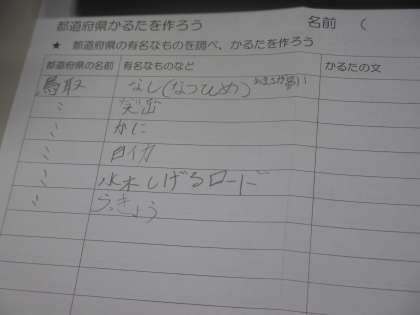 都道府県かるたを作ろう 名前 (
★ 都道府県の有名なものを調べ、かるたを作ろう
都道府県の名前 有名なものなど かるたの文
鳥取 なし(なつひめ)
〃
〃 かに
〃 白イカ
〃 水木しげるロード
〃 らっきょう